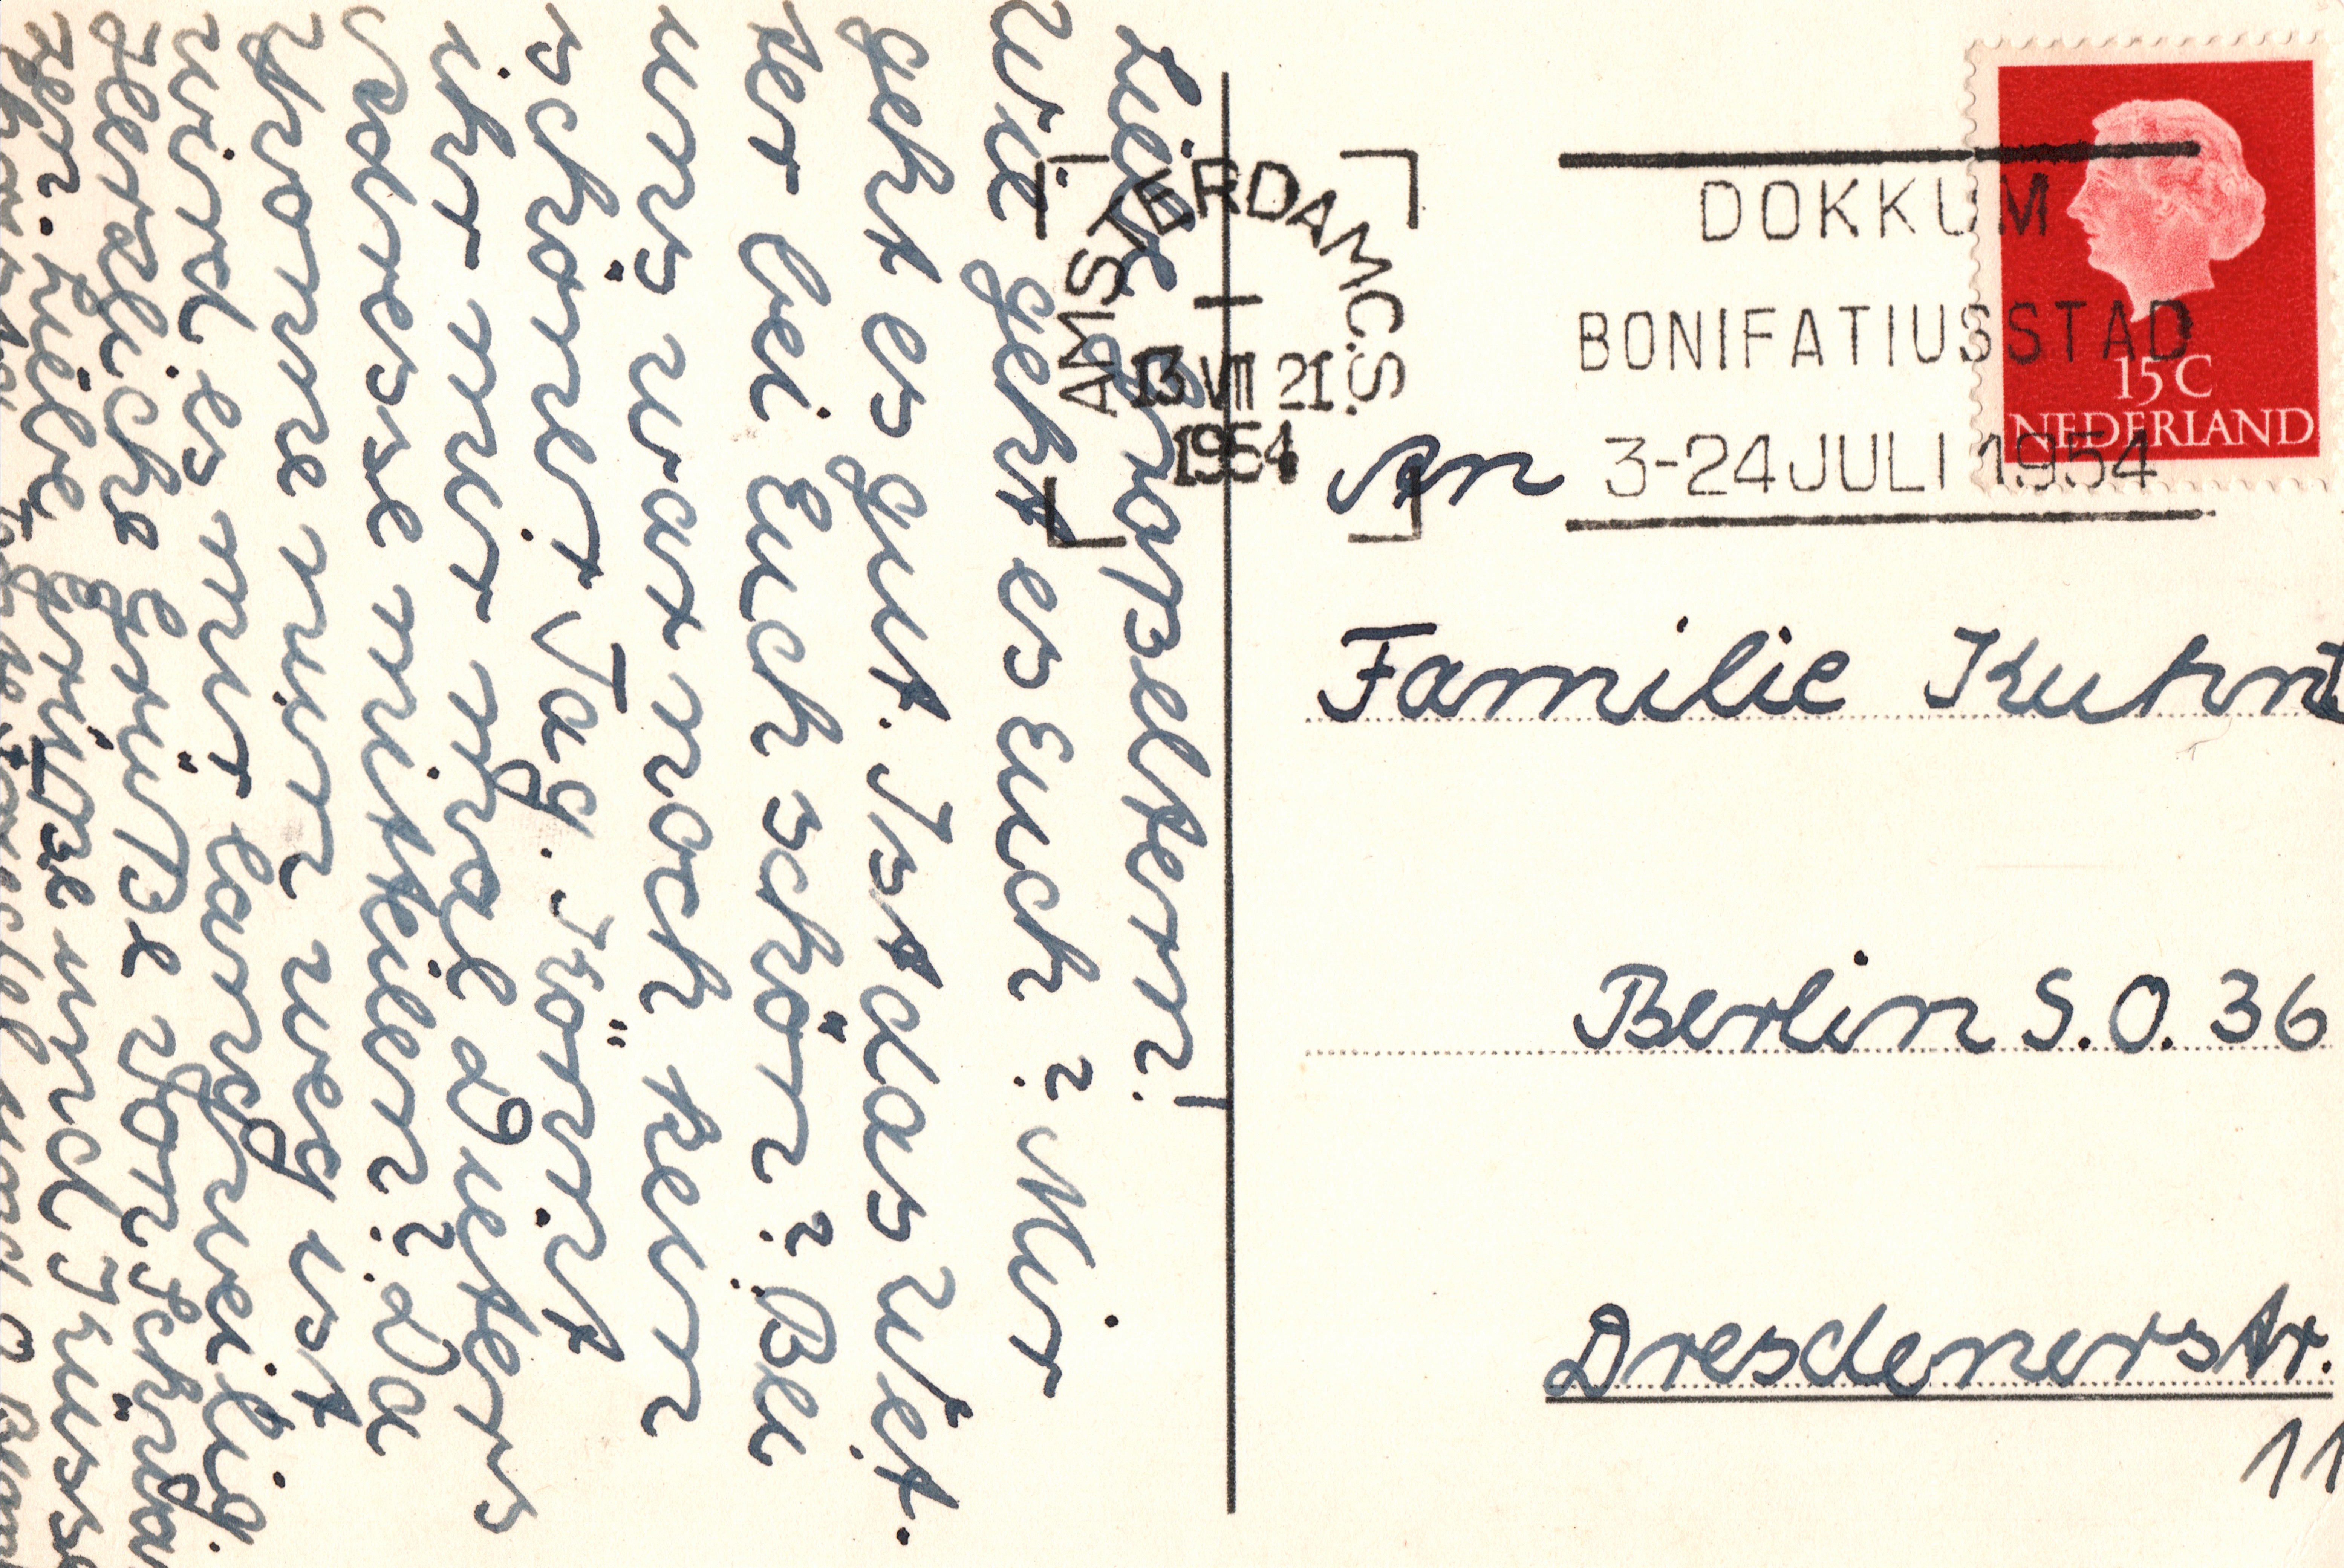 Liebe Großeltern!
Wie geht es Euch? Mir
geht es gut. Ist das Wet.
ter bei Euch schön? Bei
uns war noch kein
schöner Tag. Könnt
ihr mir mal Dieters
Adresse mitteilen? Da
Yvonne nun weg ist
wird es mir langweilig.
Herzliche Grüße von
Liebe Grüße und Küsse
AMSTERDAM C.S.
13 VII 21
1954
DOKKUM
BONIFATIUSSTAD
3-24 JULI 1954
15 C
NEDERLAND
An
Familie Kuhnt
Berlin S.O. 36
Dresdenerstr.
11